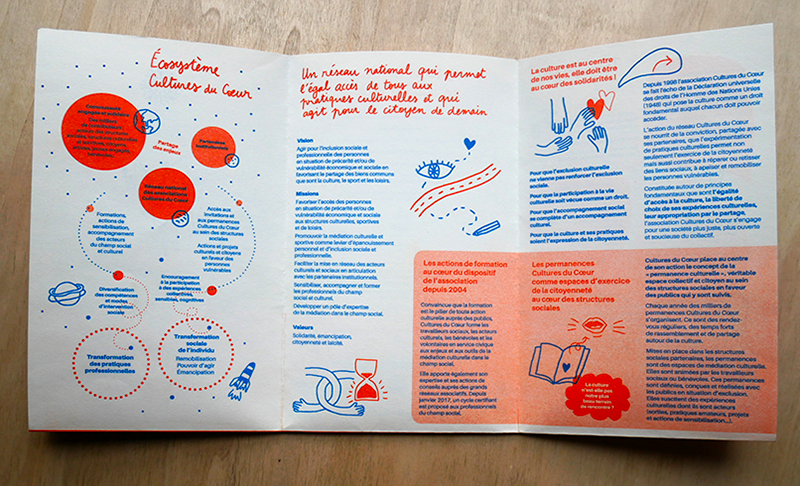 Écosystème
Cultures du Cœur
Communauté
engagée et solidaire
Des milliers
Partage
des enjeux
Partenaires
institutionnels
Réseau national
des associations
Cultures du Cœur
Formations,
actions de
sensibilisation,
accompagnement
des acteurs
du champ social
et culturel
Accès aux
invitations et
aux permanences
Cultures du Cœur
au sein des structures
sociales
Actions et projets
culturels et citoyens
en faveur des
personnes
vulnérables
Diversification
des compétences
et modes
d'intervention
sociale
Encouragement
à la participation
à des expériences
collectives,
sensibles, cognitives
Transformation
des pratiques
professionnelles
Transformation
sociale
de l'individu
Remobilisation
Pouvoir d'agir
Émancipation
Un réseau national qui permet
l'égal accès de tous aux
pratiques culturelles et qui
agit pour le citoyen de demain
Vision
Agir pour l'inclusion sociale et
professionnelle des personnes
en situation de précarité et/ou de
vulnérabilité économique et sociale en
favorisant le partage des biens communs
que sont la culture, le sport et les loisirs.
Missions
Favoriser l'accès des personnes
en situation de précarité et/ou de
vulnérabilité économique et sociale
aux structures culturelles, sportives
et de loisirs.
Promouvoir la médiation culturelle et
sportive comme levier d'épanouissement
personnel et d'inclusion sociale et
professionnelle.
Faciliter la mise en réseau des acteurs
culturels et sociaux en articulation
avec les partenaires institutionnels.
Sensibiliser, accompagner et former
les professionnels du champ
social et culturel.
Développer un pôle d'expertise
de la médiation dans le champ social.
Valeurs
Solidarité, émancipation,
citoyenneté et laïcité.
Les actions de formation
au cœur du dispositif
de l'association
depuis 2004
Convaincue que la formation
est le pilier de toute action
culturelle auprès des publics,
Cultures du Cœur forme les
travailleurs sociaux, les acteurs
culturels, les bénévoles et les
volontaires en service civique
aux enjeux et aux outils de la
médiation culturelle dans le
champ social.
Elle apporte également son
expertise et ses actions de
conseils auprès des grands
réseaux associatifs. Depuis
janvier 2017, un cycle certifiant
est proposé aux professionnels
du champ social.
La culture est au centre
de nos vies, elle doit être
au cœur des solidarités !
Pour que l'exclusion culturelle
ne vienne pas renforcer l'exclusion
sociale.
Pour que la participation à la vie
culturelle soit vécue comme un droit.
Pour que l'accompagnement social
se complète d'un accompagnement
culturel.
Pour que la culture et ses pratiques
soient l'expression de la citoyenneté.
Depuis 1998 l'association Cultures du Cœur
se fait l'écho de la Déclaration universelle
des droits de l'Homme des Nations Unies
(1948) qui pose la culture comme un droit
fondamental auquel chacun doit pouvoir
accéder.
L'action du réseau Cultures du Cœur
se nourrit de la conviction, partagée avec
ses partenaires, que l'expérimentation
de pratiques culturelles permet non
seulement l'exercice de la citoyenneté
mais aussi contribue à réparer ou retisser
des liens sociaux, à apaiser et remobiliser
les personnes vulnérables.
Constituée autour de principes
fondamentaux que sont l'égalité
d'accès à la culture, la liberté de
choix de ses expériences culturelles,
leur appropriation par le partage,
l'association Cultures du Cœur s'engage
pour une société plus juste, plus ouverte
et soucieuse du collectif.
Les permanences
Cultures du Cœur
comme espaces d'exercice
de la citoyenneté
au cœur des structures
sociales
La culture
n'est-elle pas
notre plus
beau terrain
de rencontre ?
Cultures du Cœur place au centre
de son action le concept de la
« permanence culturelle », véritable
espace collectif et citoyen au sein
des structures sociales en faveur
des publics qui y sont suivis.
Chaque année des milliers de
permanences Cultures du Cœur
s'organisent. Ce sont des rendez-
vous réguliers, des temps forts
de rassemblement et de partage
autour de la culture.
Mises en place dans les structures
sociales partenaires, les permanences
sont des espaces de médiation culturelle.
Elles sont animées par les travailleurs
sociaux ou bénévoles. Ces permanences
sont définies, conçues et réalisées avec
les publics en situation d'exclusion.
Elles suscitent des expériences
culturelles dont ils sont acteurs
(sorties, pratiques amateurs, projets
et actions de sensibilisation...).